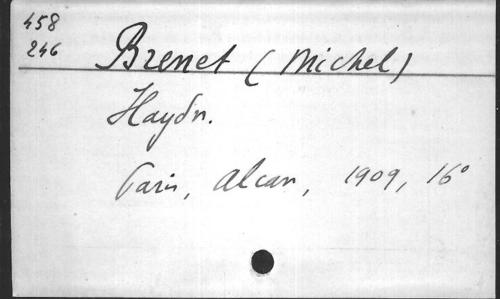 458
246
Brenet (Michel)
Haydn.
Paris, Alcan, 1909, 16°